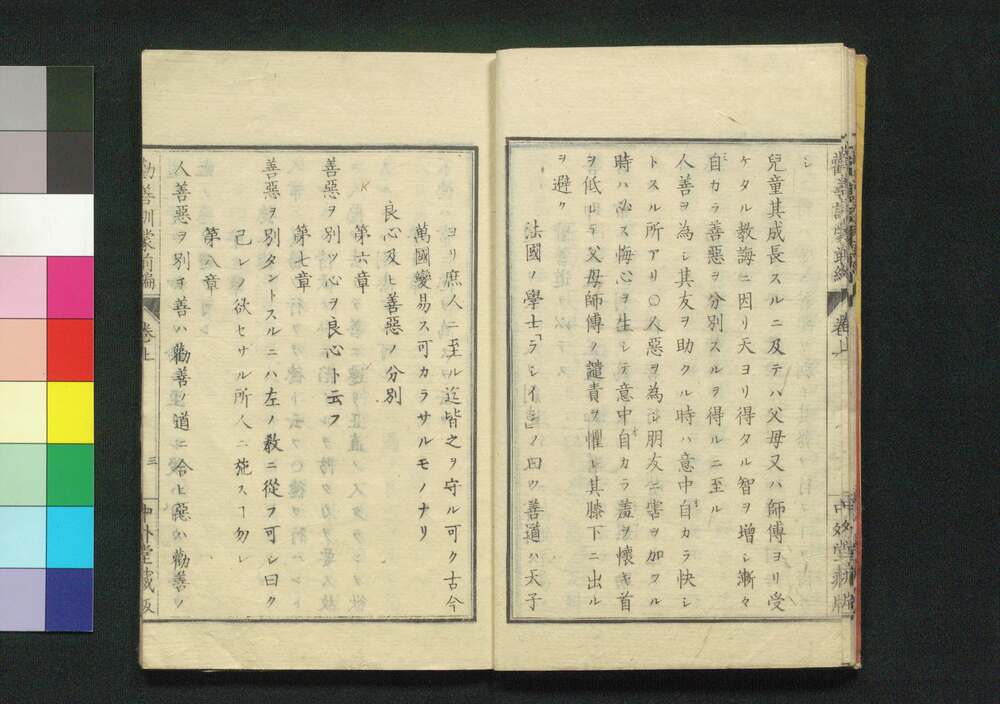 シ
兒童其成長スルニ及テハ父母又ハ師傅ヨリ受
ケタル教誨ニ因リ天ヨリ得タル智ヲ增シ漸々
自カラ善惡ヲ分別スルヲ得ルニ至ル
人善ヲ為シ其友ヲ助クル時ハ意中自カラ快シ
トスル所アリ〇人惡ヲ為シ朋友ニ害ヲ加フル
時ハ必ス悔心ヲ生シテ意中自カラ羞ヲ懷キ首
ヲ低レテ父母師傅ノ譴責ヲ懼レ其膝下ニ出ル
ヲ避ク
法國ノ學士「ラシイ子」ノ曰ク善道ハ天子
ヨリ庶人ニ至ル迄皆之ヲ守ル可ク古今
萬國變易ス可カラサルモノナリ
良心及ヒ善惡ノ分別
第六章
善惡ヲ別ツ心ヲ良心ト云フ
第七章
善惡ヲ別タントスルニハ左ノ教ニ從フ可シ曰ク
己レノ欲セサル所人ニ施スヿ勿レ
第八章
人善惡ヲ別チ善ハ勸善ノ道ニ合ヒ惡ハ勸善ノ
勸善訓蒙前編
卷上
三
中外堂藏版